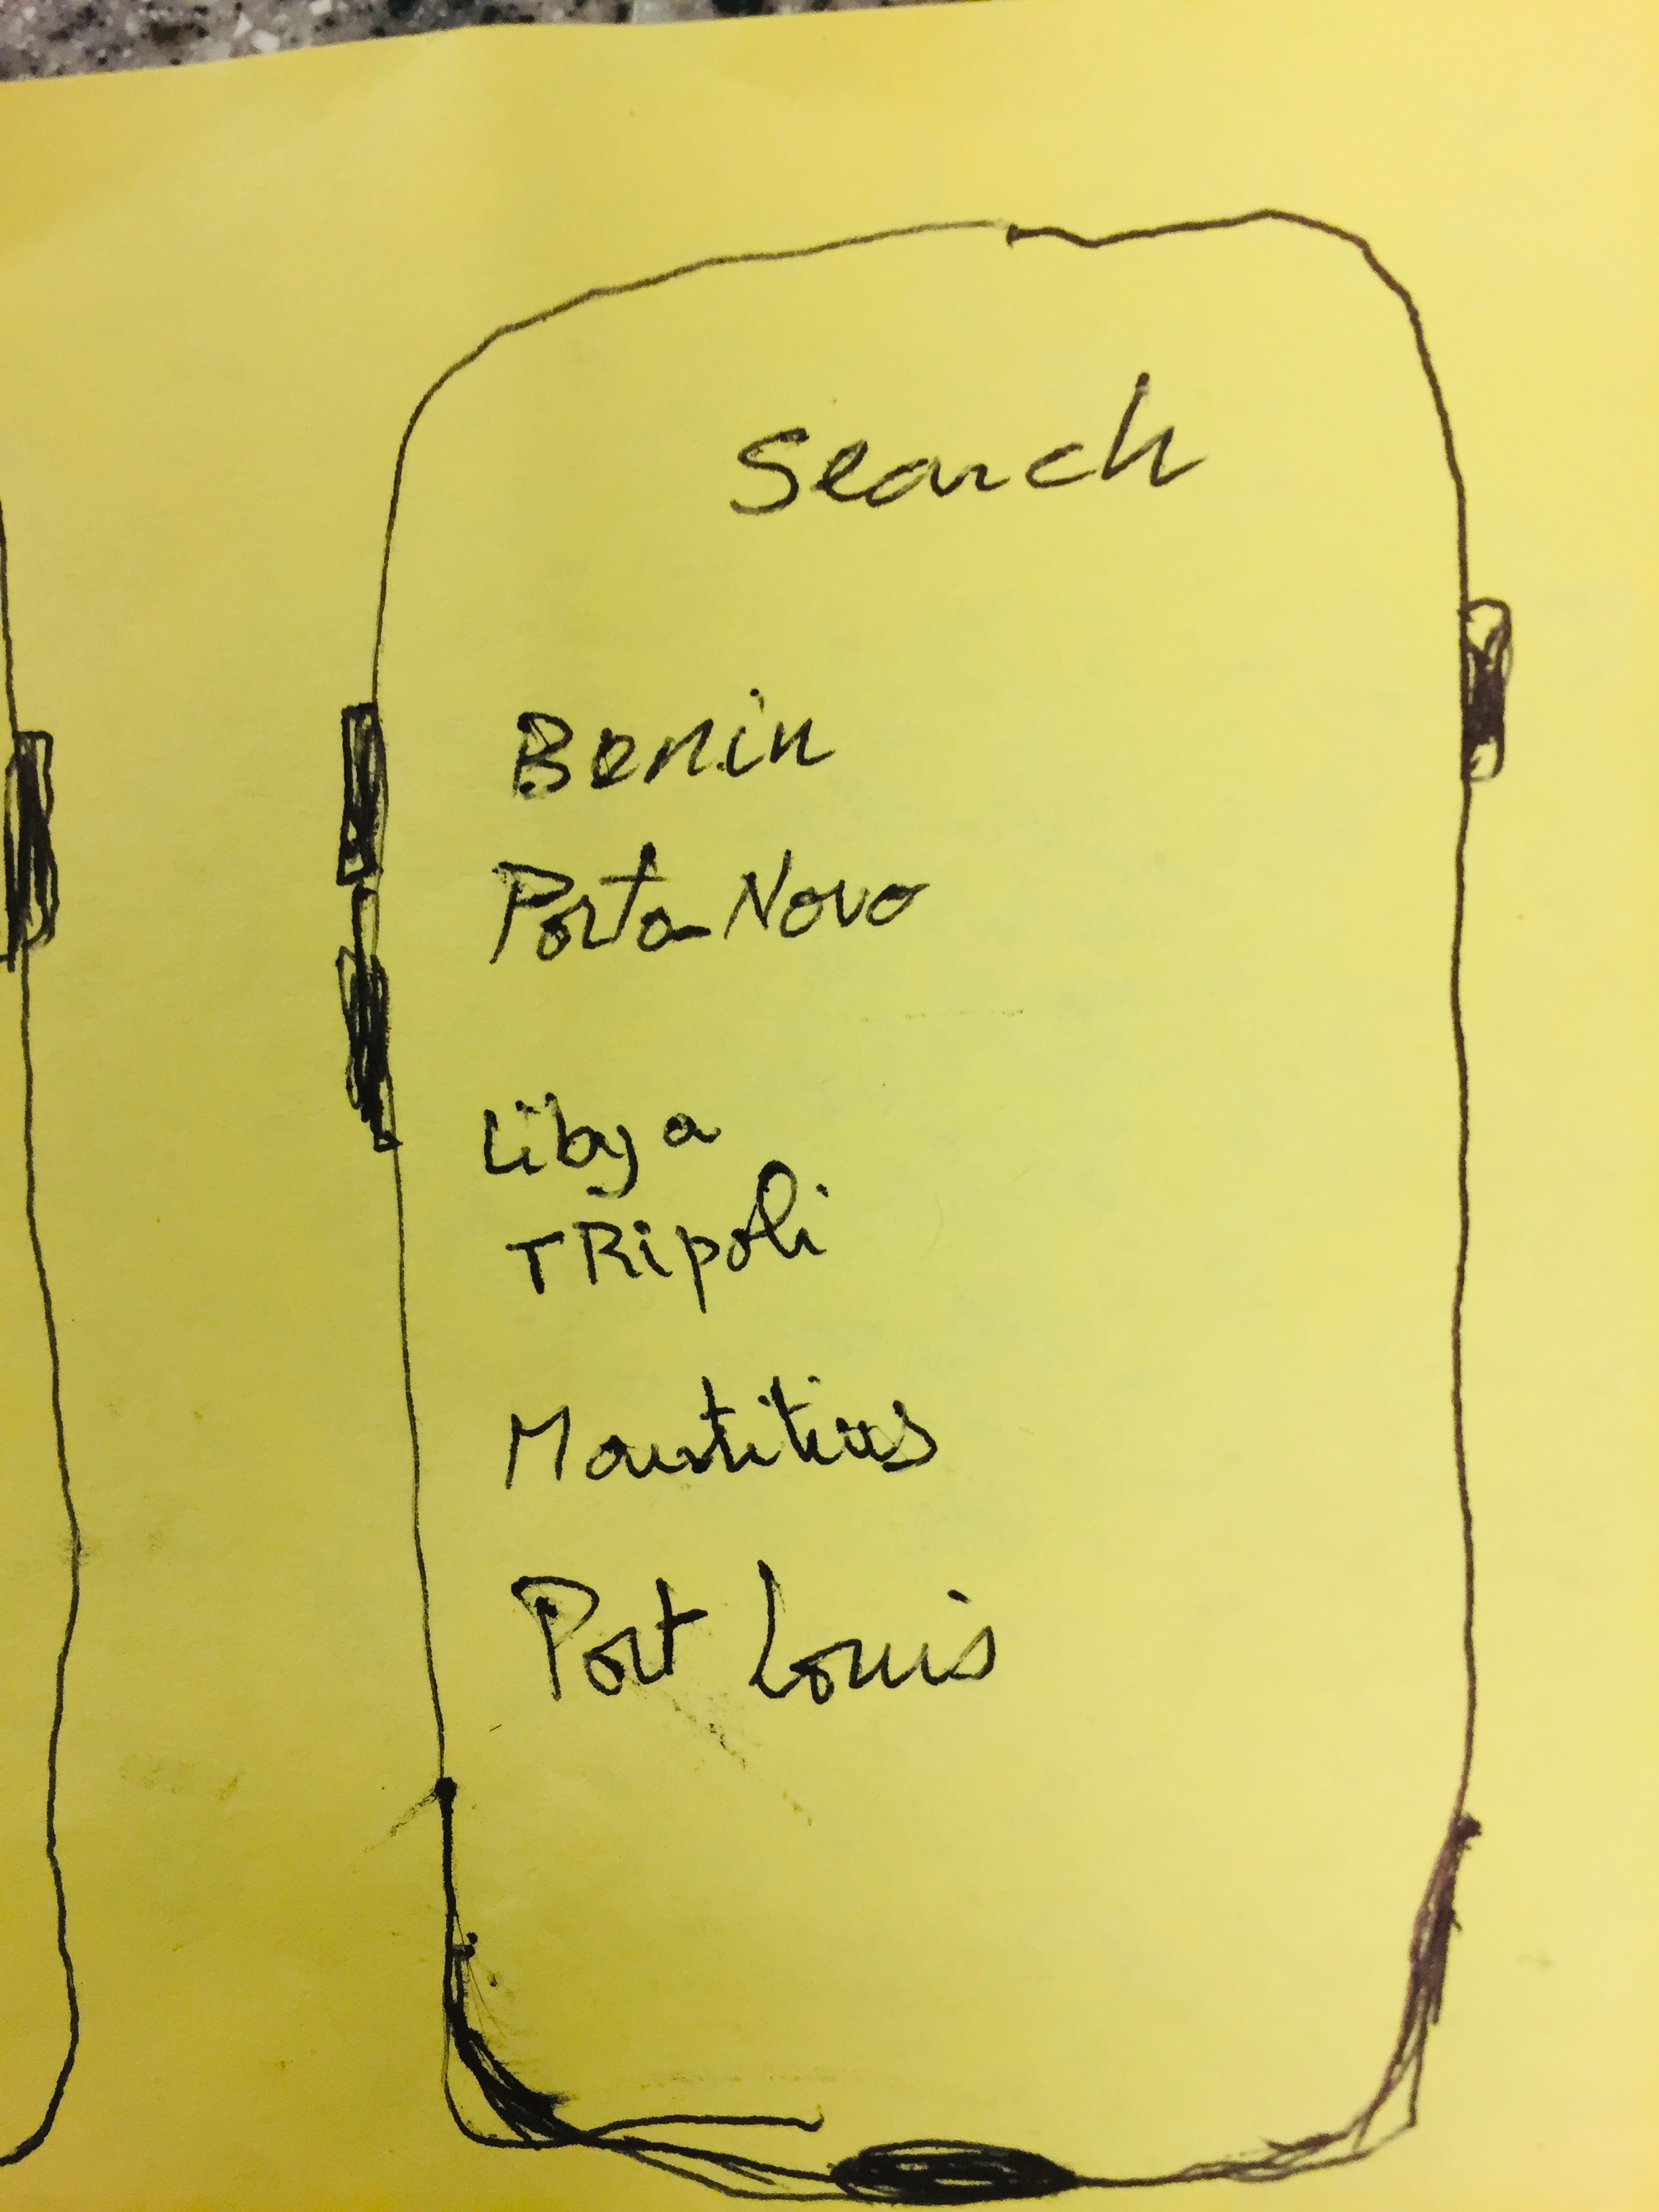 Search
Benin
Porto-Novo
Libya
TRipoli
Mauritius
Port Louis